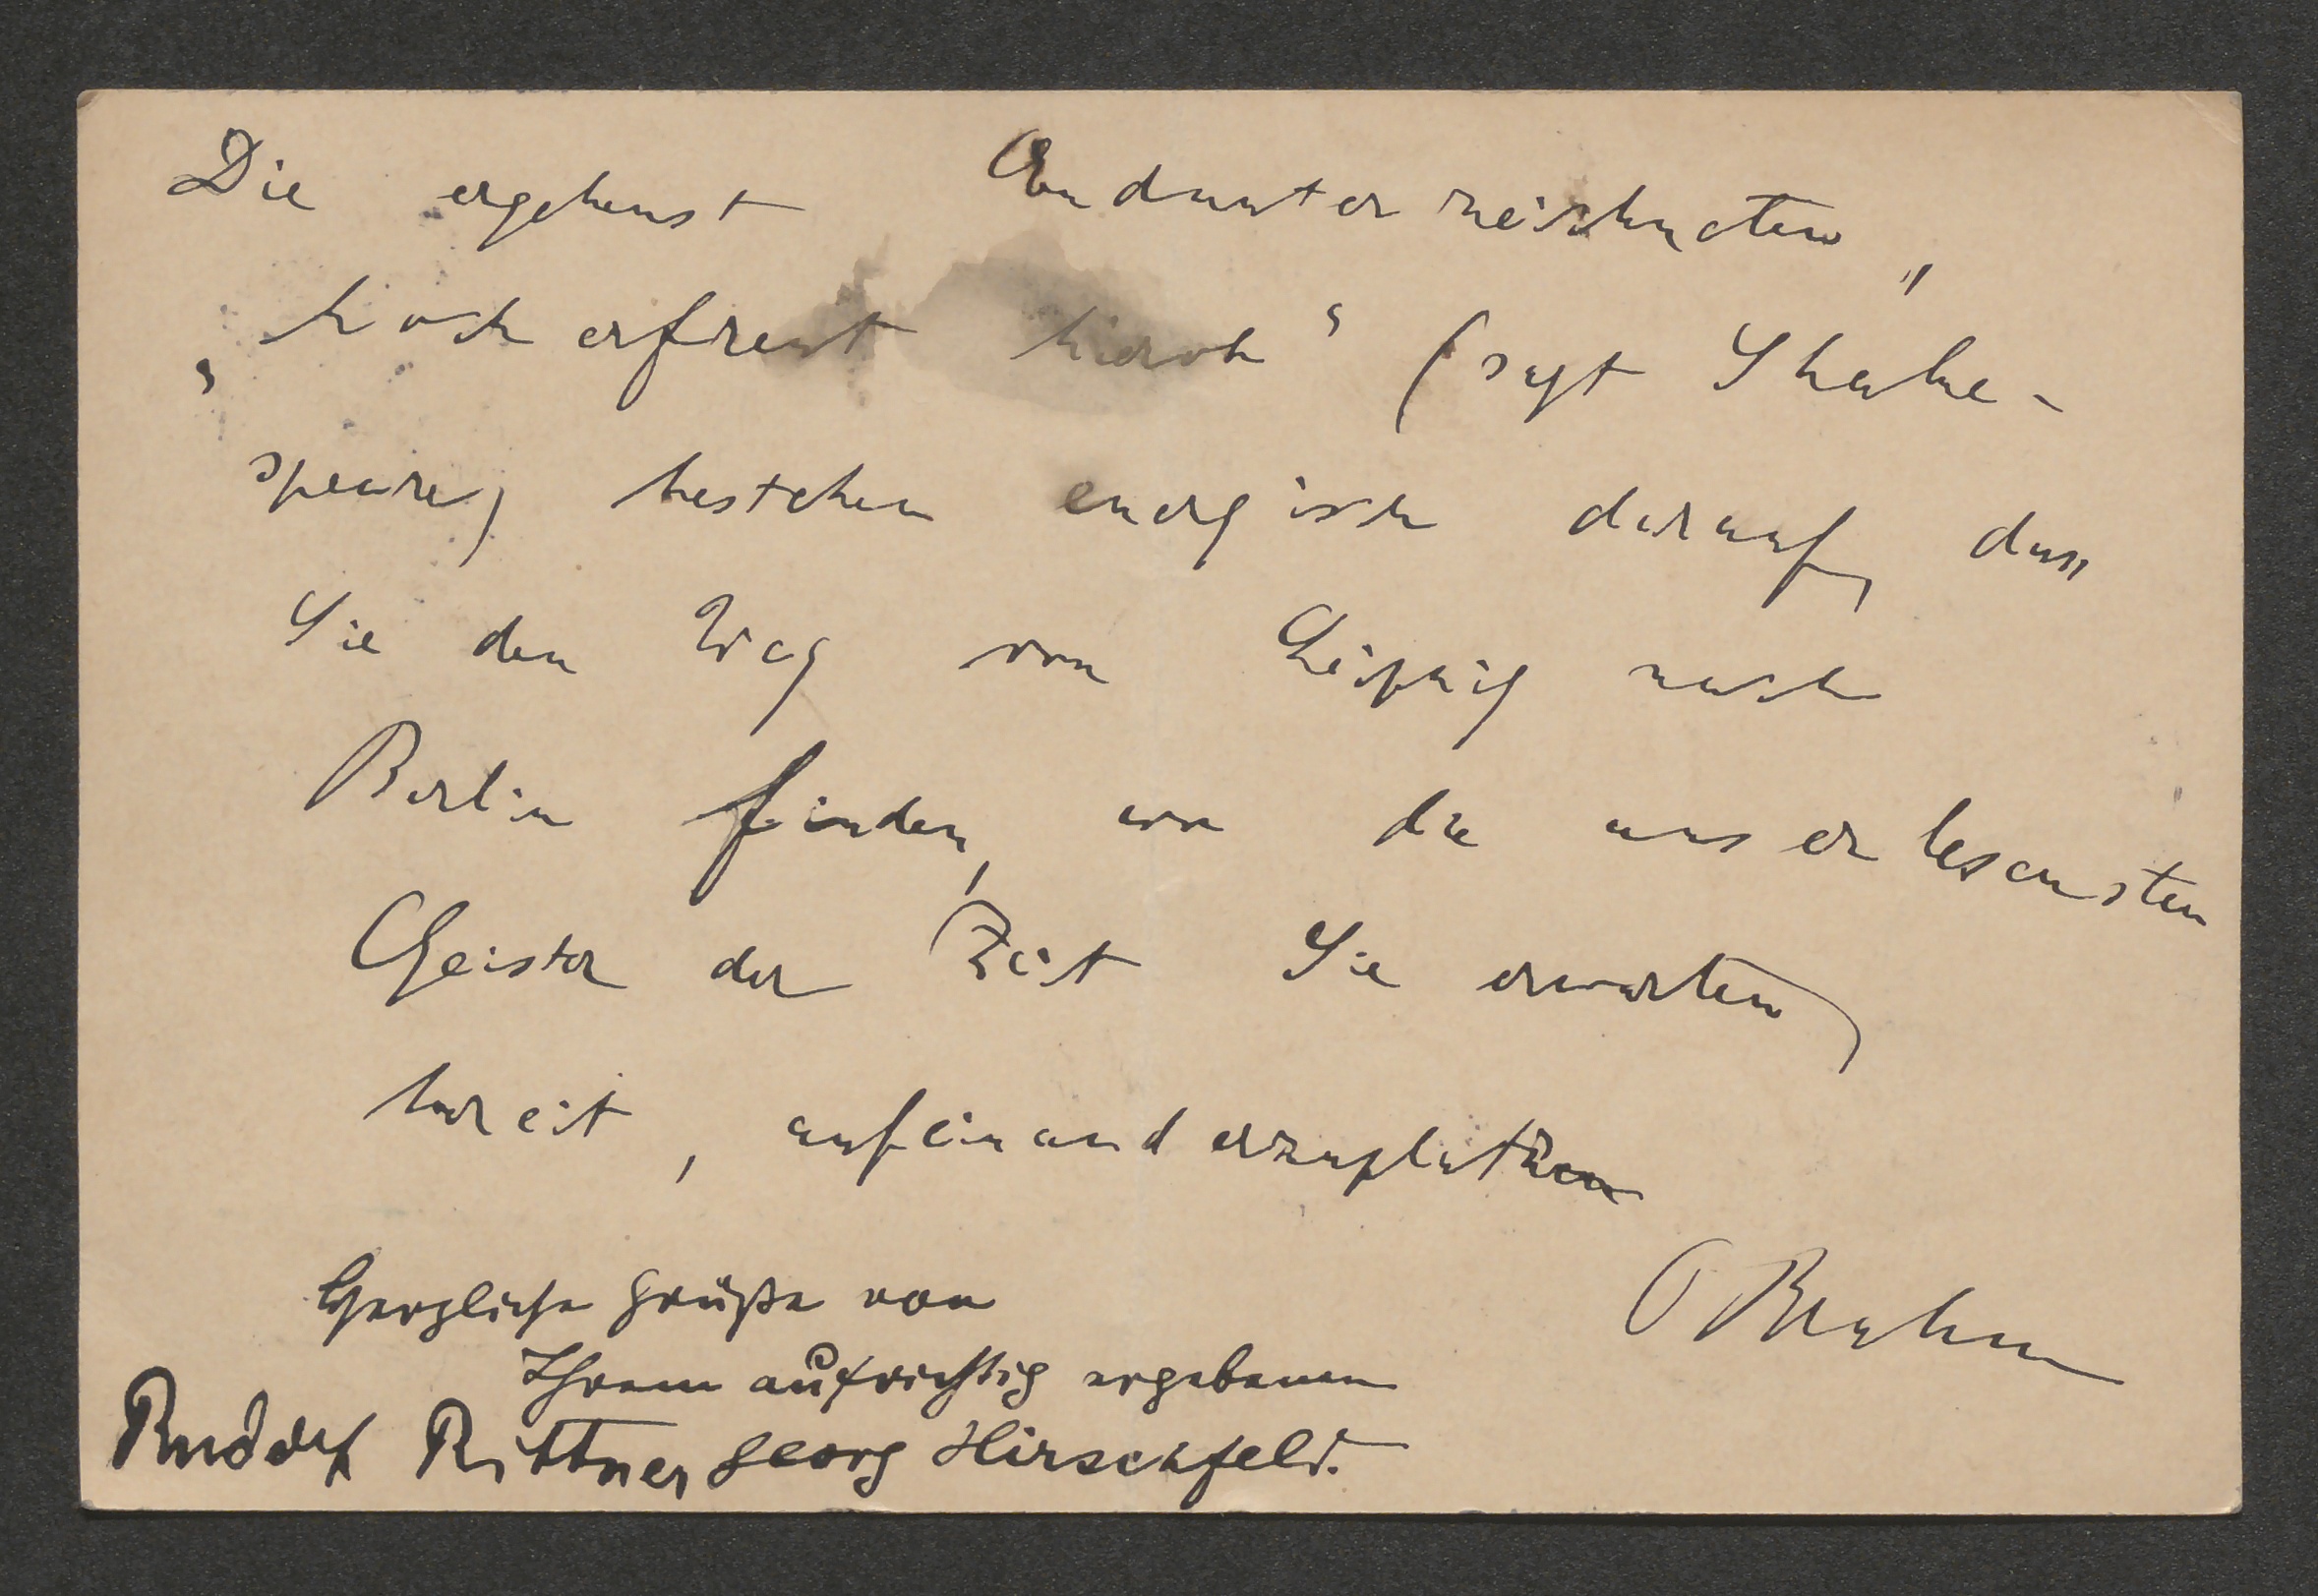 Die ergebenst Endunterzeichneten,
„hoch erfreut hierob“ (sagt Shake-
speare) bestehen energisch darauf, dass
Sie den Weg von Leipzig nach
Berlin finden, wo die auserlesensten
Geister der Zeit Sie erwarten,
bereit, aufeinanderzuplatzen
OBrahm
Herzliche Grüße von
Ihrem aufrichtig ergebenen
Rudolf Rittner Georg Hirschfeld.